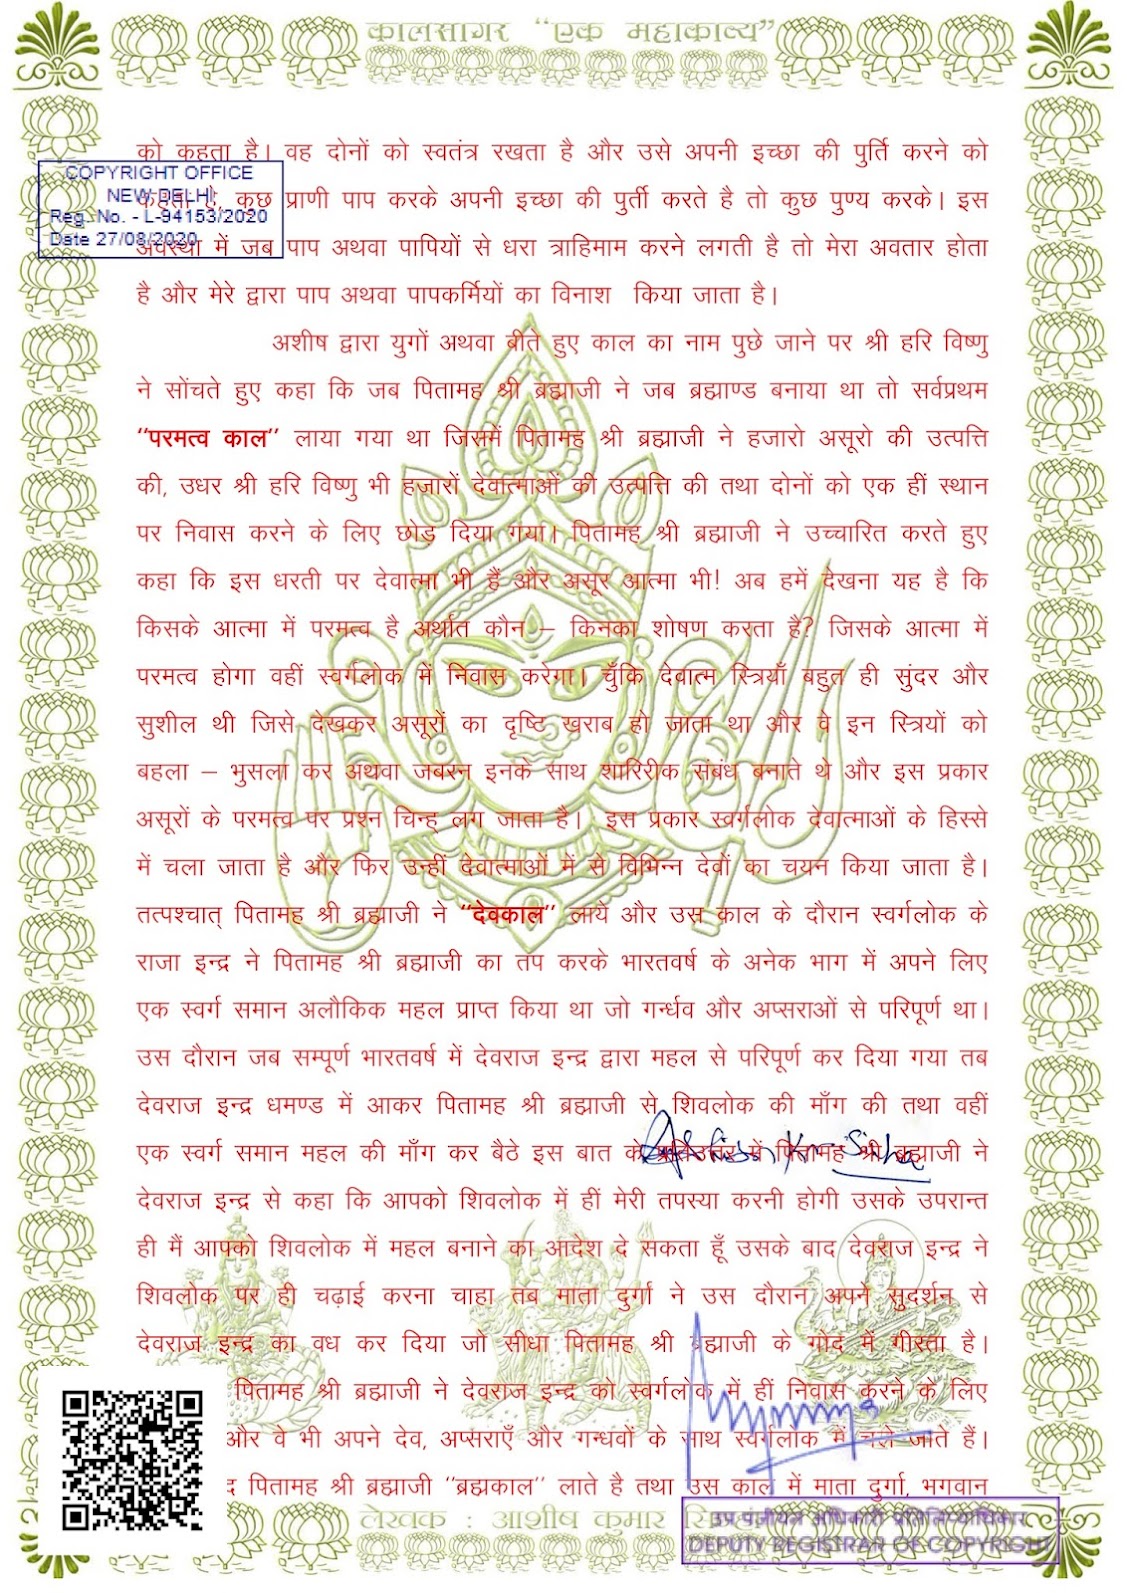 कालसागर “एक महाकाव्य”
को कहता है। वह दोनों को स्वतंत्र रखता है और उसे अपनी इच्छा की पुर्ति करने को
COPYRIGHT OFFICE
NEW DELHI
Reg. No. - L-94153/2020
Date 27/08/2020
कहता है, कुछ प्राणी पाप करके अपनी इच्छा की पुर्ती करते है तो कुछ पुण्य करके। इस
अवस्था में जब पाप अथवा पापियों से धरा त्राहिमाम करने लगती है तो मेरा अवतार होता
है और मेरे द्वारा पाप अथवा पापकर्मियों का विनाश किया जाता है।
अशीष द्वारा युगों अथवा बीते हुए काल का नाम पुछे जाने पर श्री हरि विष्णु
ने सोंचते हुए कहा कि जब पितामह श्री ब्रह्माजी ने जब ब्रह्माण्ड बनाया था तो सर्वप्रथम
“परमत्व काल” लाया गया था जिसमें पितामह श्री ब्रह्माजी ने हजारो असूरो की उत्पत्ति
की, उधर श्री हरि विष्णु भी हजारों देवात्माओं की उत्पत्ति की तथा दोनों को एक हीं स्थान
पर निवास करने के लिए छोड़ दिया गया। पितामह श्री ब्रह्माजी ने उच्चारित करते हुए
कहा कि इस धरती पर देवात्मा भी हैं और असूर आत्मा भी! अब हमें देखना यह है कि
किसके आत्मा में परमत्व है अर्थात कौन – किनका शोषण करता है? जिसके आत्मा में
परमत्व होगा वहीं स्वर्गलोक में निवास करेगा। चुँकि देवात्म स्त्रियाँ बहुत ही सुंदर और
सुशील थी जिसे देखकर असूरों का दृष्टि खराब हो जाता था और वे इन स्त्रियों को
बहला – भुसला कर अथवा जबरन इनके साथ शारिरीक संबंध बनाते थे और इस प्रकार
असूरों के परमत्व पर प्रश्न चिन्ह् लग जाता है। इस प्रकार स्वर्गलोक देवात्माओं के हिस्से
में चला जाता है और फिर उन्हीं देवात्माओं में से विभिन्न देवों का चयन किया जाता है।
तत्पश्चात् पितामह श्री ब्रह्माजी ने “देवकाल” लाये और उस काल के दौरान स्वर्गलोक के
राजा इन्द्र ने पितामह श्री ब्रह्माजी का तप करके भारतवर्ष के अनेक भाग में अपने लिए
एक स्वर्ग समान अलौकिक महल प्राप्त किया था जो गर्न्धव और अप्सराओं से परिपूर्ण था।
उस दौरान जब सम्पूर्ण भारतवर्ष में देवराज इन्द्र द्वारा महल से परिपूर्ण कर दिया गया तब
देवराज इन्द्र धमण्ड में आकर पितामह श्री ब्रह्माजी से शिवलोक की माँग की तथा वहीं
एक स्वर्ग समान महल की माँग कर बैठे इस बात के प्रतिउत्तर में पितामह श्री ब्रह्माजी ने
देवराज इन्द्र से कहा कि आपको शिवलोक में हीं मेरी तपस्या करनी होगी उसके उपरान्त
ही मैं आपको शिवलोक में महल बनाने का आदेश दे सकता हूँ उसके बाद देवराज इन्द्र ने
शिवलोक पर ही चढ़ाई करना चाहा तब माता दुर्गा ने उस दौरान अपने सुदर्शन से
देवराज इन्द्र का वध कर दिया जो सीधा पितामह श्री ब्रह्माजी के गोद में गीरता है।
पितामह श्री ब्रह्माजी ने देवराज इन्द्र को स्वर्गलोक में हीं निवास करने के लिए
और वे भी अपने देव, अप्सराएँ और गन्धवों के साथ स्वर्गलोक में चले जाते हैं।
द पितामह श्री ब्रह्माजी “ब्रह्मकाल” लाते है तथा उस काल में माता दुर्गा, भगवान
लेखक : आशीष कुमार
उप पंजीयन अधिकारी प्रतिलिप्याधिकार
DEPUTY REGISTRAR OF COPYRIGHT